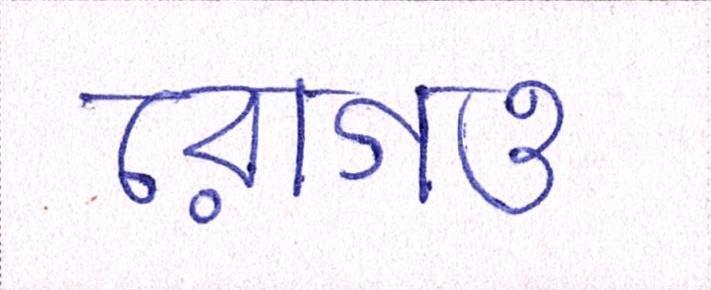 রোগও